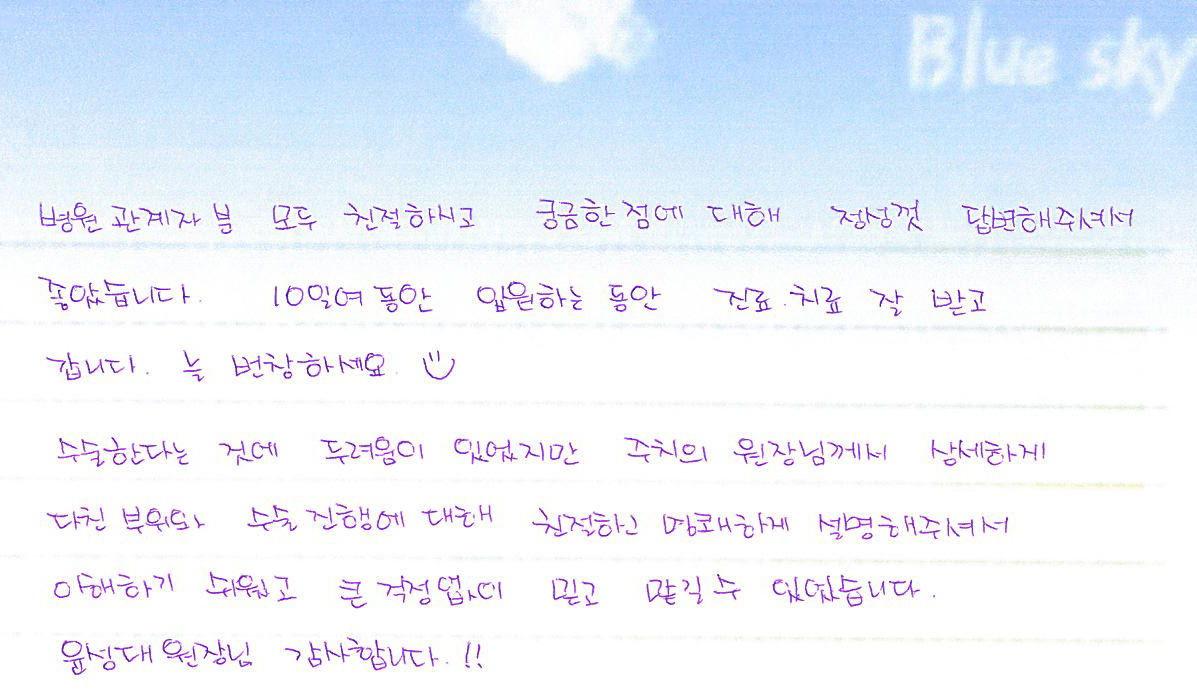 Blue sky
병원 관계자 분 모두 친절하시고 궁금한 점에 대해 정성껏 답변해주셔서
좋았습니다. 10일여 동안 입원하는 동안 진료·치료 잘 받고
갑니다. 늘 번창하세요.
수술한다는 것에 두려움이 있었지만 주치의 원장님께서 상세하게
다친 부위와 수술 진행에 대해 친절하고 명쾌하게 설명해주셔서
이해하기 쉬웠고 큰 걱정 없이 믿고 맡길 수 있었습니다.
윤성대 원장님 감사합니다.!!